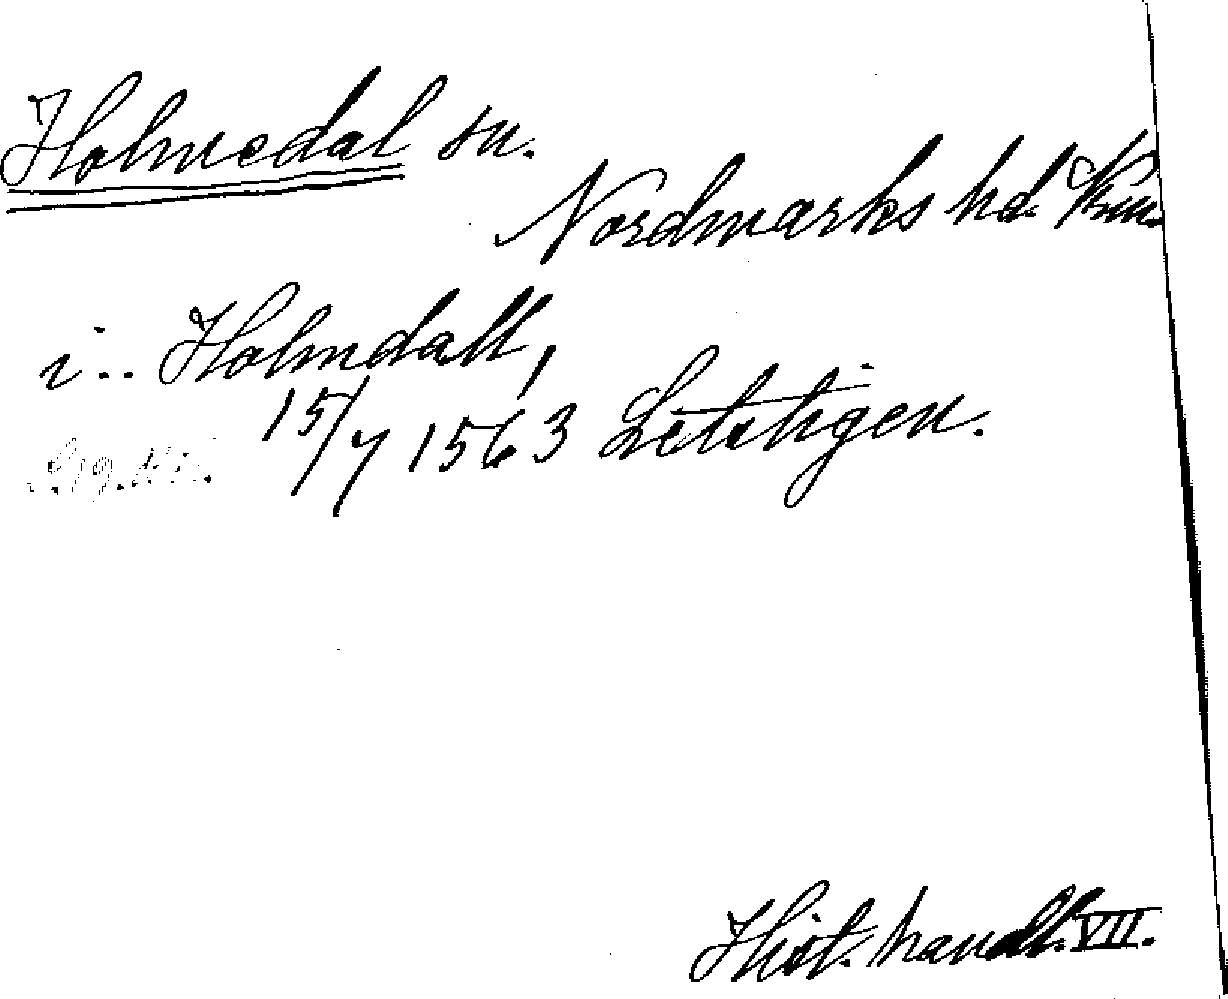 Holmedal sn.
Nordmarks hd. Vrm.
i.. Holmdall,
15/7 1563 Letstigen.
Hist. handl. VII.